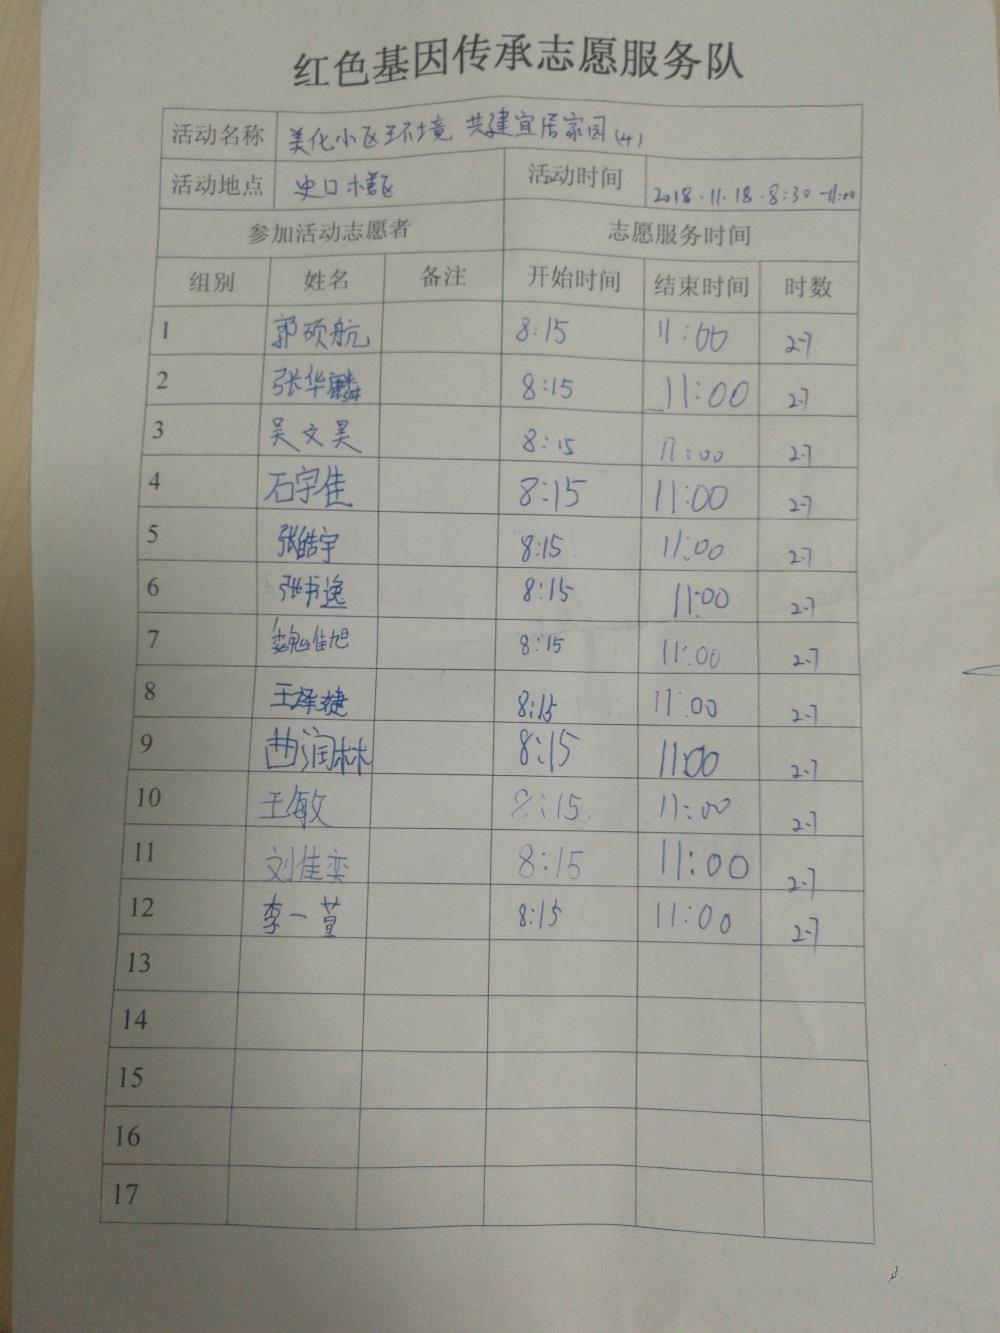 红色基因传承志愿服务队
活动名称 美化小区环境 共建宜居家园(4)
活动地点 史口 活动时间 2018.11.18.8:30-11:00
参加活动志愿者 志愿服务时间
组别 姓名 备注 开始时间 结束时间 时数
1 郭硕航 8:15 11:00 2.7
2 张华麟 8:15 11:00 2.7
3 吴文昊 8:15 11:00 2.7
4 石宇佳 8:15 11:00 2.7
5 张皓宇 8:15 11:00 2.7
6 张书逸 8:15 11:00 2.7
7 魏佳旭 8:15 11:00 2.7
8 王泽捷 8:15 11:00 2.7
9 曲润林 8:15 11:00 2.7
10 王敏 8:15 11:00 2.7
11 刘佳奕 8:15 11:00 2.7
12 李一萱 8:15 11:00 2.7
13
14
15
16
17